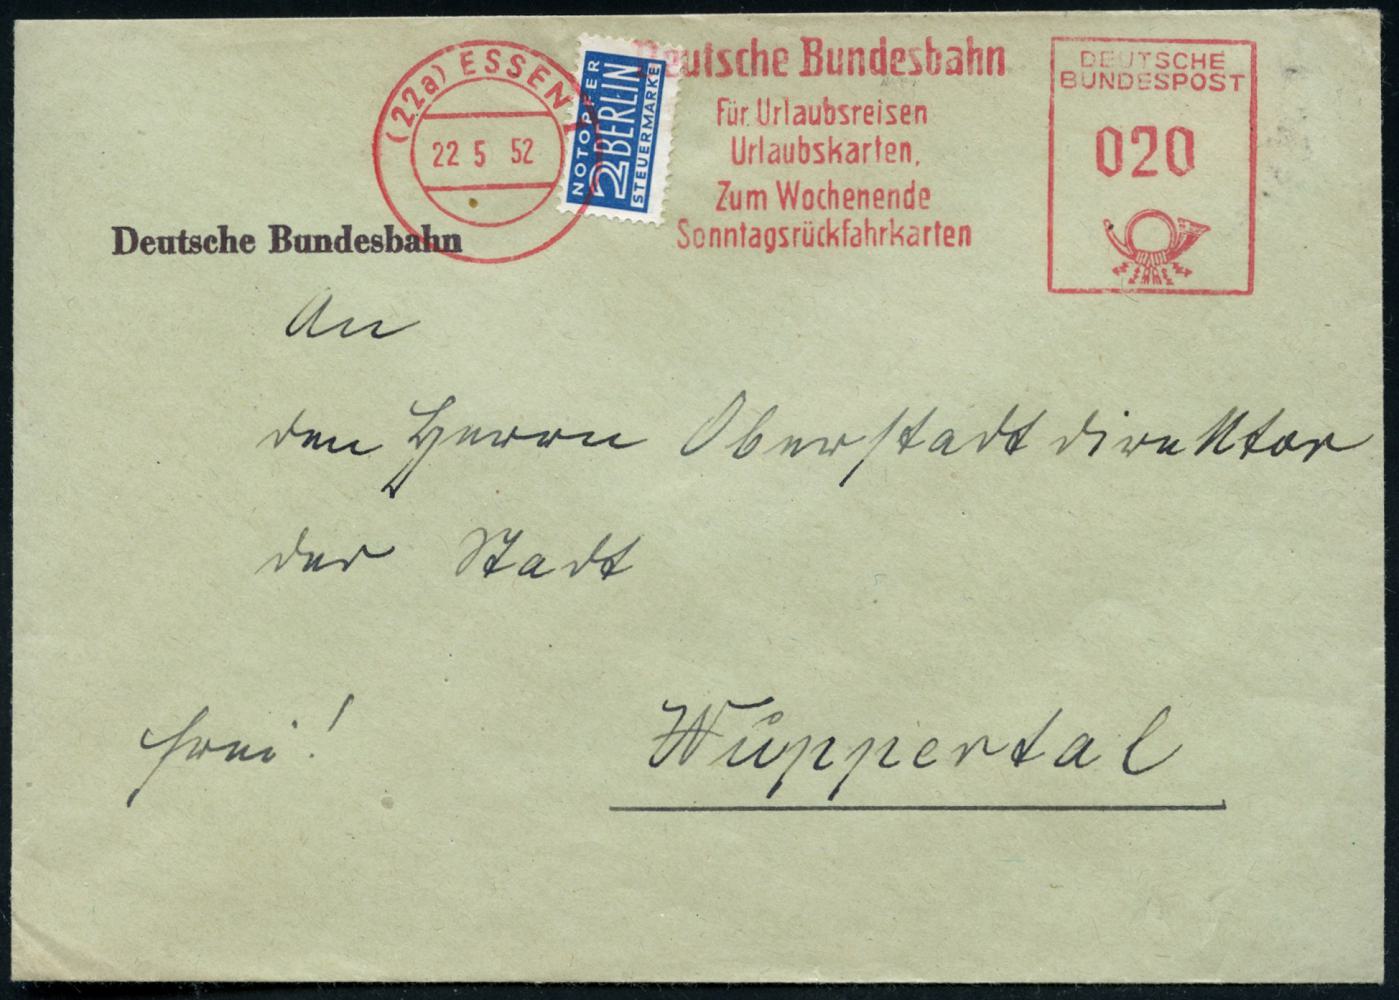 (22a) ESSEN
22 5 52
NOTOPFER
2 BERLIN
STEUERMARKE
Deutsche Bundesbahn
Für Urlaubsreisen
Urlaubskarten,
Zum Wochenende
Sonntagsrückfahrkarten
DEUTSCHE
BUNDESPOST
020
Deutsche Bundesbahn
An
den Herrn Oberstadtdirektor
der Stadt
frei!
Wuppertal